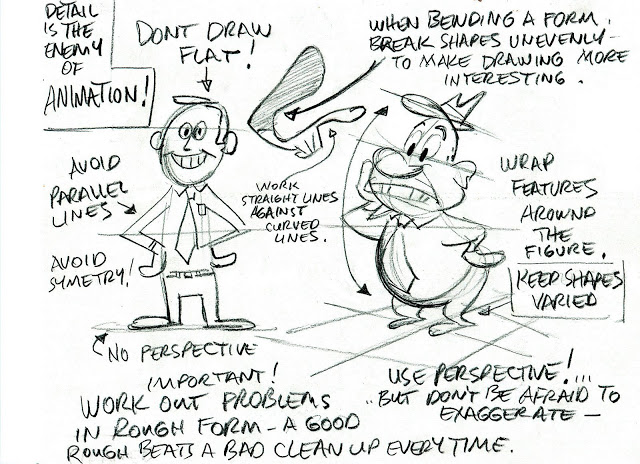 DETAIL
IS THE
ENEMY
OF
ANIMATION!
DONT DRAW
FLAT!
WHEN BENDING A FORM,
BREAK SHAPES UNEVENLY –
TO MAKE DRAWING MORE
INTERESTING.
AVOID
PARALLEL
LINES
AVOID
SYMETRY!
WORK
STRAIGHT LINES
AGAINST
CURVED
LINES.
WRAP
FEATURES
AROWND
THE
FIGURE.
KEEP SHAPES
VARIED
NO PERSPECTIVE
USE PERSPECTIVE!...
..BUT DON'T BE AFRAID TO
EXAGGERATE –
IMPORTANT!
WORK OUT PROBLEMS
IN ROUGH FORM – A GOOD
ROUGH BEATS A BAD CLEAN UP EVERY TIME.